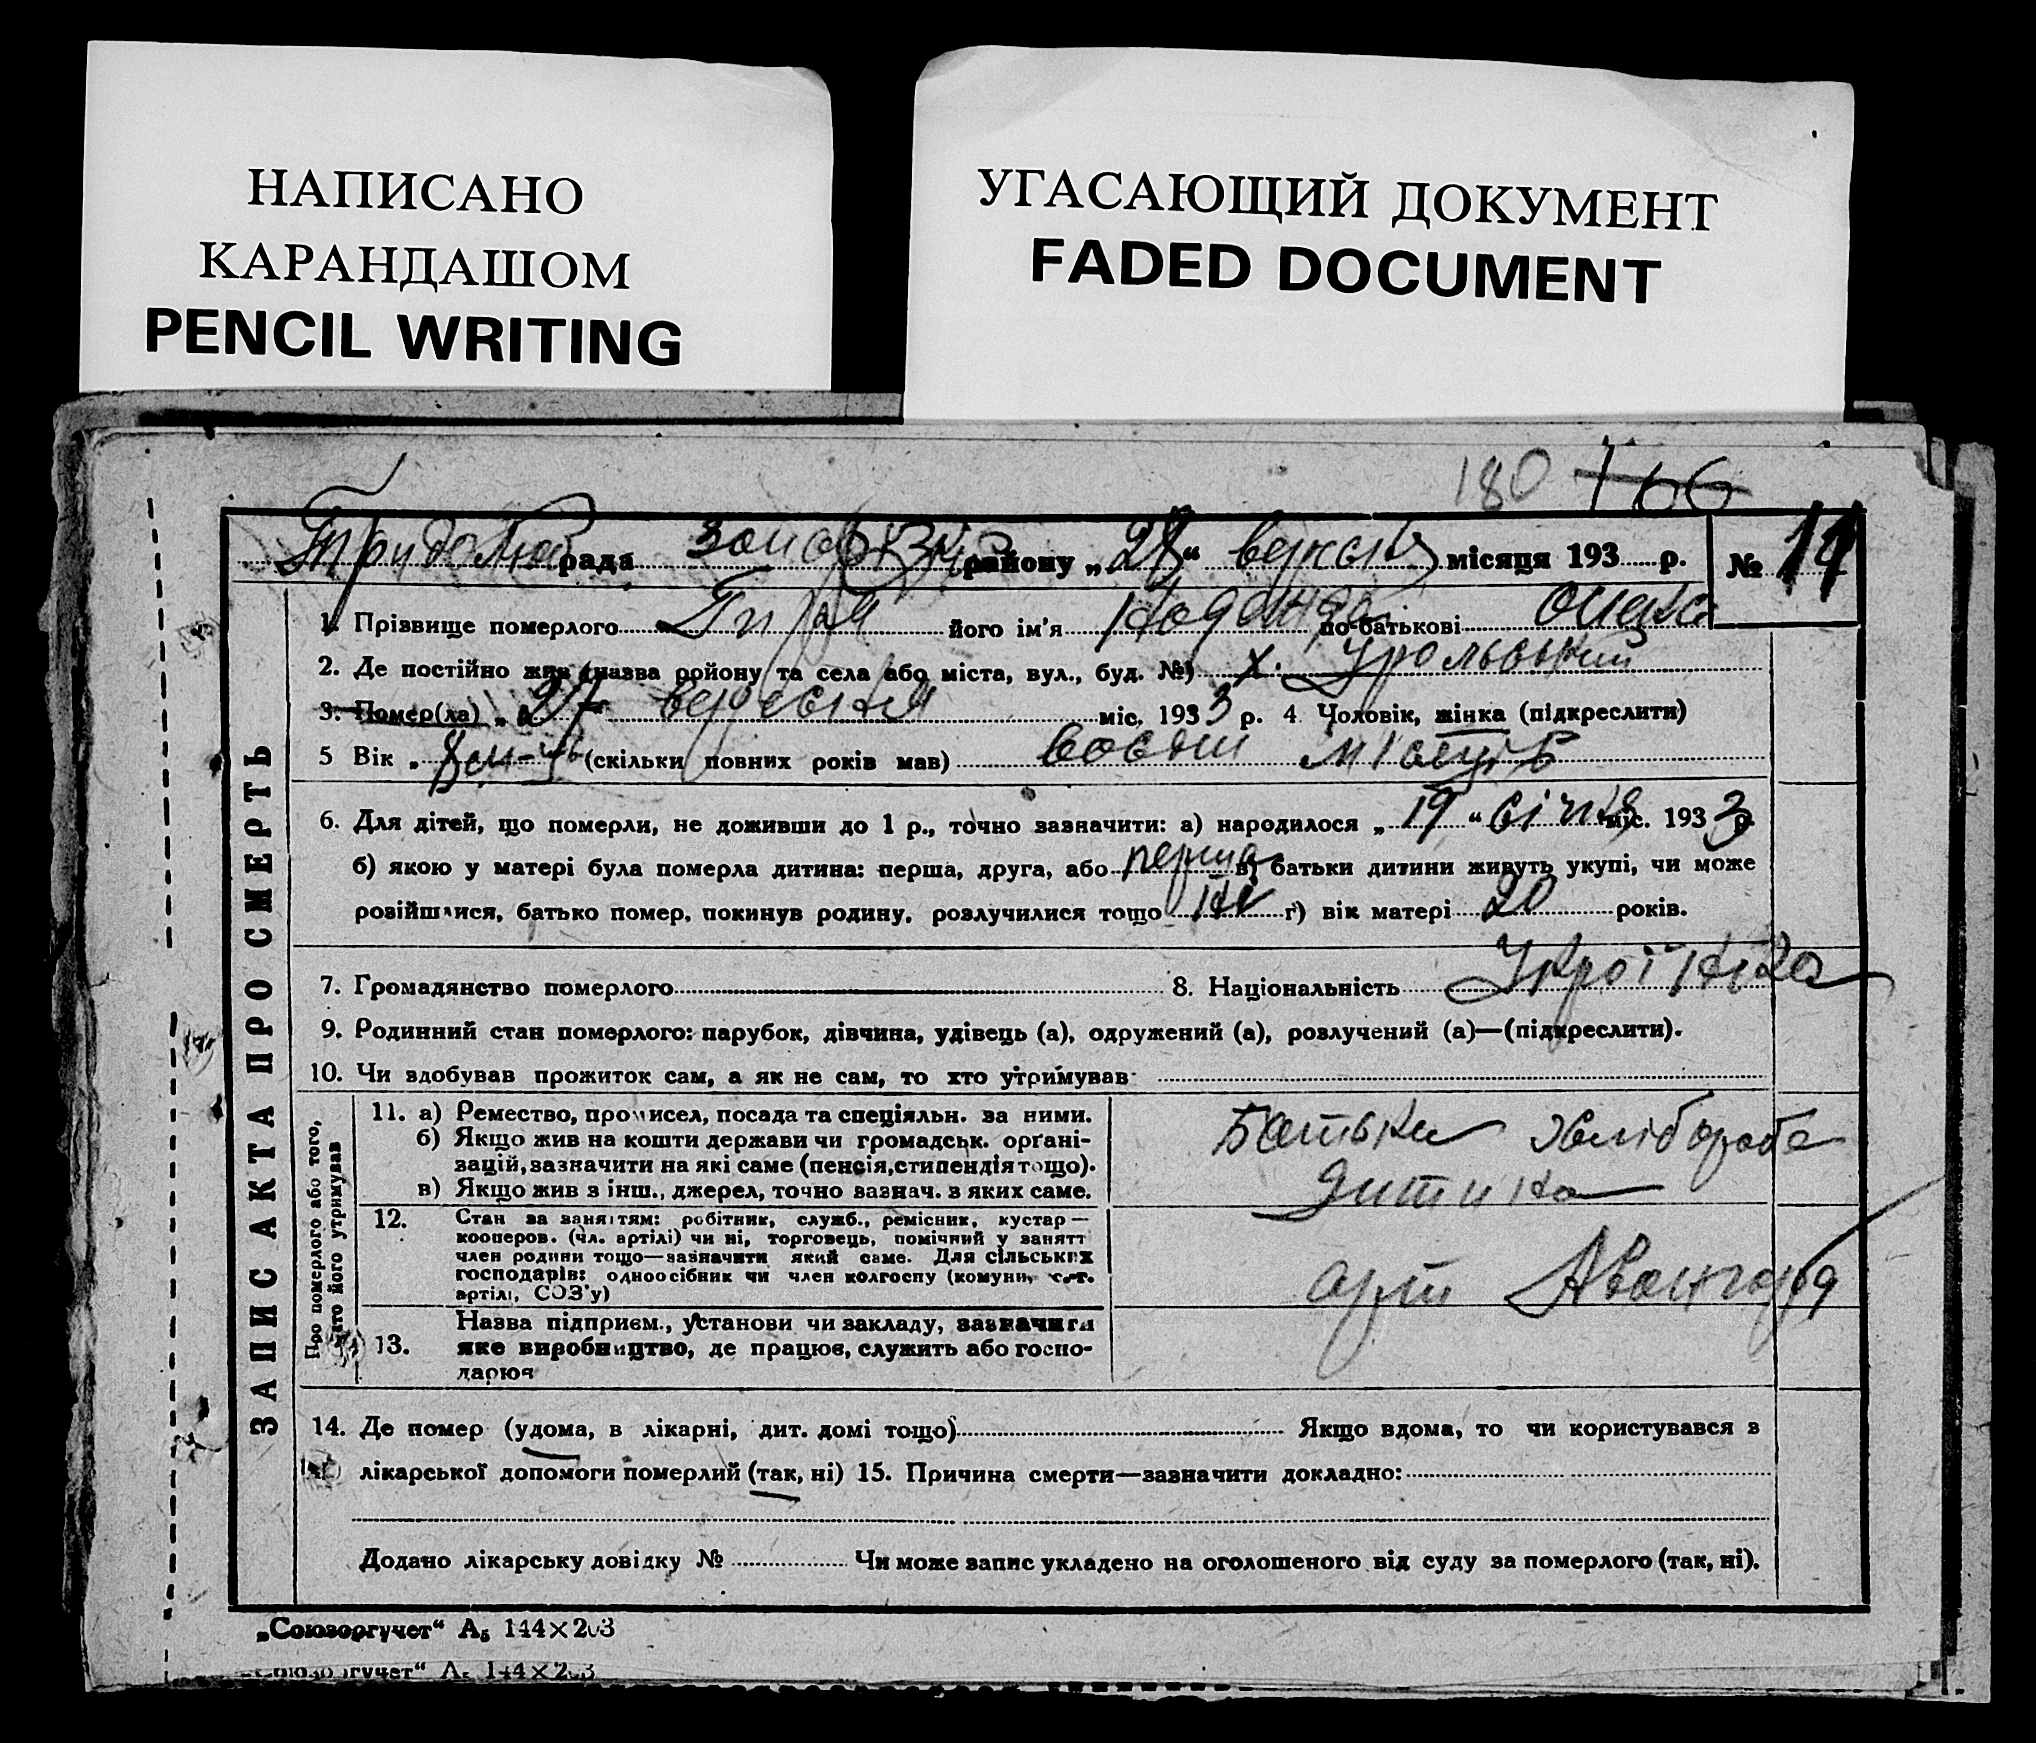 НАПИСАНО
КАРАНДАШОМ
PENCIL WRITING
УГАСАЮЩИЙ ДОКУМЕНТ
FADED DOCUMENT
180 166
рада району „28“ вересня місяця 193 р. № 11
1. Прізвище померлого його ім'я по-батькові
2. Де постійно жив (назва району та села або міста, вул., буд. №) х. Уральський
3. Помер(ла) „27“ вересня міс. 1933 р. 4. Чоловік, жінка (підкреслити)
5 Вік „ (скільки повних років мав) восем місяців
6. Для дітей, що померли, не доживши до 1 р., точно зазначити: а) народилося „19“ січня міс. 1933 р.
б) якою у матері була померла дитина: перша, друга, або перша в) батьки дитини живуть укупі, чи може
розійшлися, батько помер, покинув родину, розлучилися тощо ні г) вік матері 20 років.
7. Громадянство померлого 8. Національність Українка
9. Родинний стан померлого: парубок, дівчина, удівець (а), одружений (а), розлучений (а)—(підкреслити).
10. Чи здобував прожиток сам, а як не сам, то хто утримував
ЗАПИС АКТА ПРО СМЕРТЬ
Про померлого або того, хто його утримував
11. а) Ремество, промисел, посада та спеціяльн. за ними.
б) Якщо жив на кошти держави чи громадськ. органі-
зацій, зазначити на які саме (пенсія, стипендія тощо).
в) Якщо жив з інш., джерел, точно зазнач. з яких саме.
Батьки хлібороба
дитина
12. Стан за заняттям: робітник, служб., ремісник, кустар—
кооперов. (чл. артілі) чи ні, торговець, помічний у занятт
член родини тощо—зазначити який саме. Для сільських
господарів: одноосібник чи член колгоспу (комуни, с.-г.
артілі, СОЗ'у)
арт Авангард
13. Назва підприєм., установи чи закладу, зазначити
яке виробництво, де працює, служить або госпо-
дарює
14. Де помер (удома, в лікарні, дит. домі тощо) Якщо вдома, то чи користувався з
лікарської допомоги померлий (так, ні) 15. Причина смерти—зазначити докладно:
Додано лікарську довідку № Чи може запис укладено на оголошеного від суду за померлого (так, ні).
„Союзоргучет“ А₅ 144×203
„Союзоргучет“ А₅ 144×203